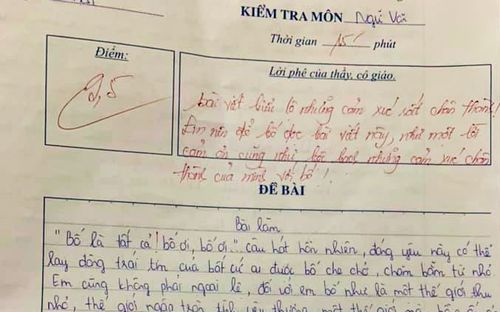 KIỂM TRA MÔN Ngữ Vă
Thời gian 15' phút
Điểm:
Lời phê của thầy, cô giáo.
bài viết biểu lộ những cảm xúc rất chân thành!
Em nên để bố đọc bài viết này, như một lời
cảm ơn cũng như bộc bạch những cảm xúc chân
thành của mình với bố!
ĐỀ BÀI
Bài làm
"Bố là tất cả! bố ơi, bố ơi..." câu hát hồn nhiên, đáng yêu này có thể
lay động trái tim của bất cứ ai được bố che chở, chăm bẵm từ nhỏ
Em cũng không phải ngoại lệ, đối với em bố như là một thế giới thu
nhỏ, thế giới ngập tràn tình yêu thương, một thế giới mà